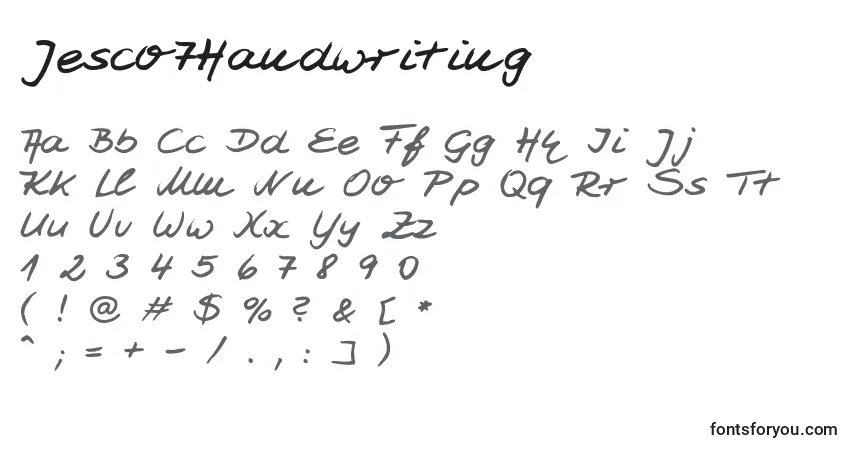 Jesco7Handwriting
Aa Bb Cc Dd Ee Ff Gg Hh Ii Jj
Kk Ll Mm Nn Oo Pp Qq Rr Ss Tt
Uu Vv Ww Xx Yy Zz
1 2 3 4 5 6 7 8 9 0
( ! @ # $ % ? & [ *
^ ; = + - / . , : ] )
fontsforyou.com